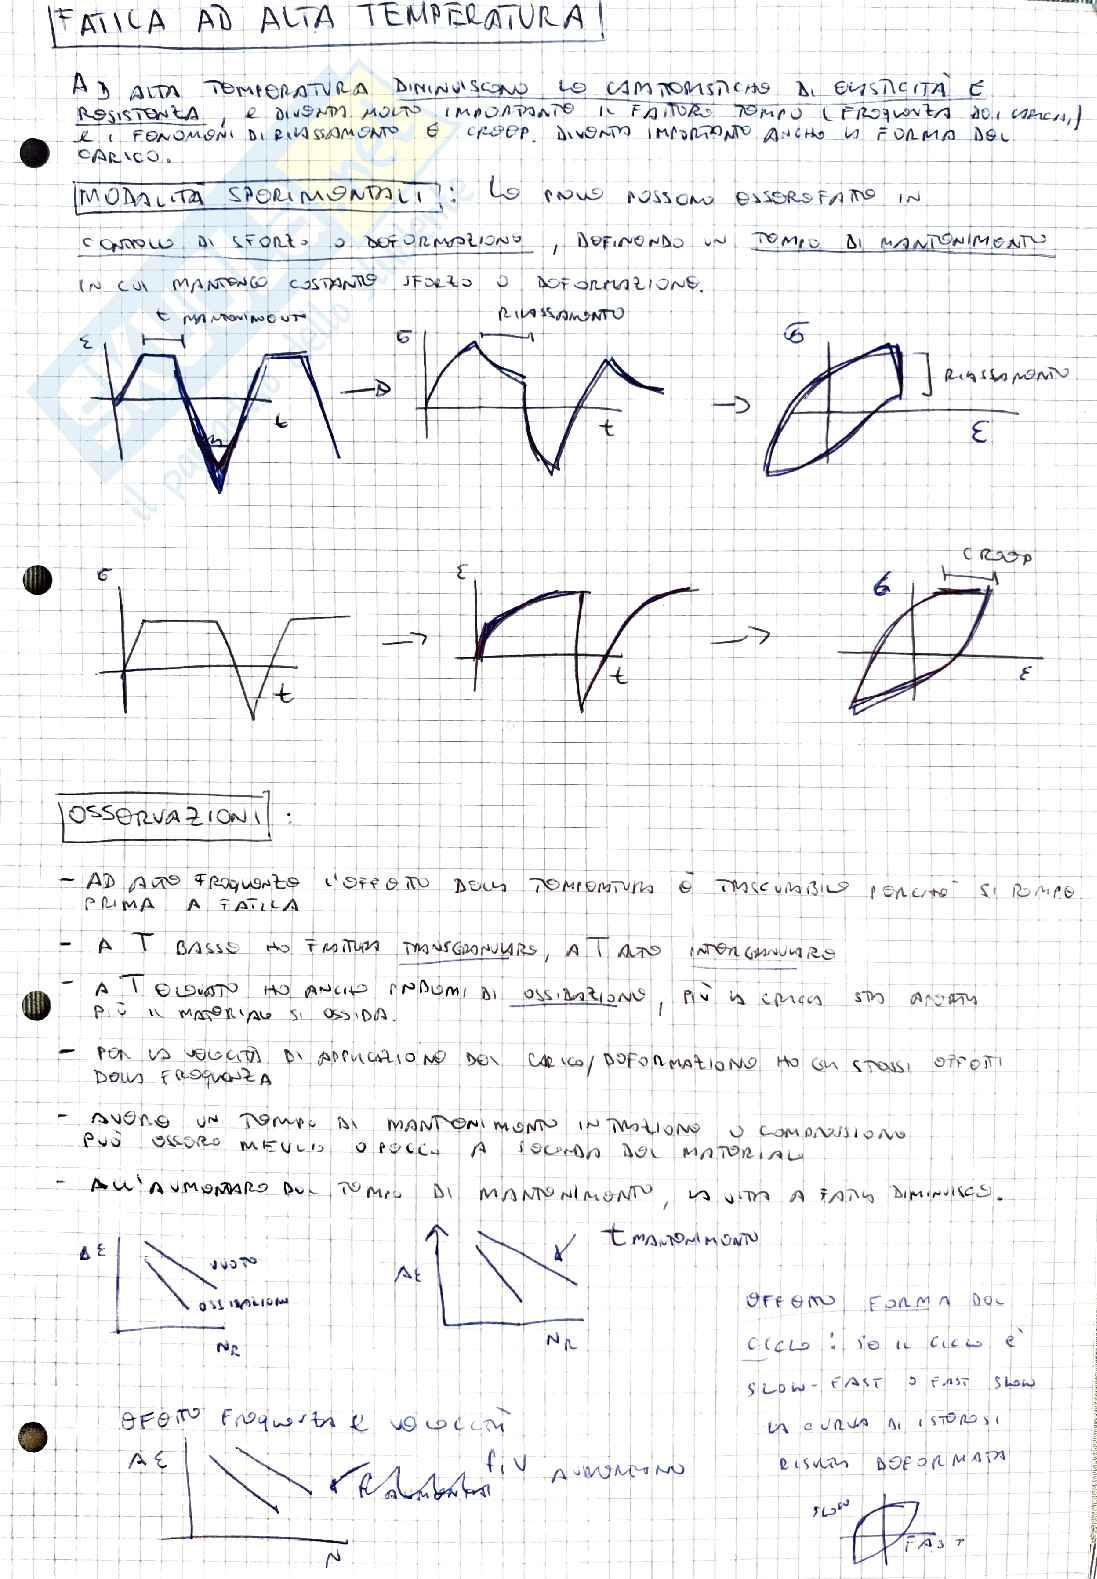 FATICA AD ALTA TEMPERATURA
AD ALTA TEMPERATURA DIMINUISCONO LE CARATTERISTICHE DI ELASTICITÀ E
RESISTENZA, E DIVENTA MOLTO IMPORTANTE IL FATTORE TEMPO (FREQUENZA DEI CARICHI)
E I FENOMENI DI RILASSAMENTO E CREEP. DIVENTA IMPORTANTE ANCHE LA FORMA DEL
CARICO.
MODALITÀ SPERIMENTALI: LE PROVE POSSONO ESSERE FATTE IN
CONTROLLO DI SFORZO O DEFORMAZIONE, DEFINENDO UN TEMPO DI MANTENIMENTO
IN CUI MANTENGO COSTANTE SFORZO O DEFORMAZIONE.
t MANTENIMENTO
RILASSAMENTO
ε
σ
σ
RILASSAMENTO
t
t
ε
CREEP
σ
ε
σ
t
t
ε
OSSERVAZIONI:
- AD ALTE FREQUENZE L'EFFETTO DELLA TEMPERATURA È TRASCURABILE PERCHÉ SI ROMPE
PRIMA A FATICA
- A T BASSE HO FRATTURA TRANSGRANULARE, A T ALTE INTERGRANULARE
- A T ELEVATE HO ANCHE PROBLEMI DI OSSIDAZIONE, PIÙ LA CRICCA STA APERTA
PIÙ IL MATERIALE SI OSSIDA.
- PER LA VELOCITÀ DI APPLICAZIONE DEL CARICO/DEFORMAZIONE HO GLI STESSI EFFETTI
DELLA FREQUENZA
- AVERE UN TEMPO DI MANTENIMENTO IN TRAZIONE O COMPRESSIONE
PUÒ ESSERE MEGLIO O PEGGIO A SECONDA DEL MATERIALE
- ALL'AUMENTARE DEL TEMPO DI MANTENIMENTO, LA VITA A FATICA DIMINUISCE.
Δε
VUOTO
OSSIDAZIONE
NR
Δε
t MANTENIMENTO
NR
EFFETTO FORMA DEL
CICLO: SE IL CICLO È
SLOW-FAST O FAST SLOW
LA CURVA DI ISTERESI
RISULTA DEFORMATA
SLOW
FAST
EFFETTO FREQUENZA E VELOCITÀ
Δε
f, V AUMENTANO
N